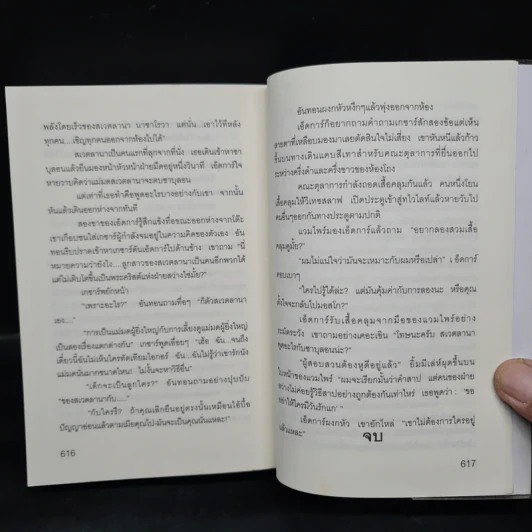 พลังโดยเร็วของสเวตลานา นาซาโรวา แต่นั่น...เอาไว้ทีหลัง
ทุกคน...เชิญทุกคนออกจากห้องไปได้"
สเวตลานาเป็นคนแรกที่ลุกจากที่นั่ง เธอเดินเข้าหาซา
บุลอนแล้วยืนมองหน้าหัวหน้าฝ่ายมืดอยู่หนึ่งวินาที เอ็ดการ์ใจ
หายวาบคิดว่าแม่มดสเวตลานาจะตบซาบุลอน
แต่เท่าที่เธอทำคือพูดอะไรบางอย่างกับเขา จากนั้น
หันแล้วเดินออกห่างจากทันที
สองขาของเอ็ดการ์รู้สึกแข็งทื่อขณะออกห่างจากโต๊ะ
เขาเกือบชนใส่เกซาร์ผู้กำลังจมอยู่ในความคิดของตัวเอง อัน
ทอนรีบปราดเข้าหาเกซาร์ดันเอ็ดการ์ไปด้านข้าง เขาถาม "นี่
หมายความว่ายังไง...ลูกสาวของสเวตลานาจะเป็นคนอีกพวกได้
แต่ไม่เติบโตขึ้นเป็นพระคริสต์แห่งฝ่ายสว่างใช่มั้ย?"
เกซาร์พยักหน้า
"เพราะอะไร?" อันทอนถามทื่อๆ "ก็ตัวสเวตลานา
เอง...."
"การเป็นแม่มดผู้ยิ่งใหญ่กับการเลี้ยงดูแม่มดผู้ยิ่งใหญ่
เป็นสองเรื่องแตกต่างกัน" เกซาร์พูดเชื่อยๆ
"เด็กจะเป็นลูกใคร?" อันทอนถามอย่างปุบปับ
"ของสเวตลานากับ....."
"กับใครรึ? ถ้าคุณเลิกยืนอยู่ตรงนั้นเหมือนไอ้บื้อ
616
อันทอนผงกหัวหงึกๆแล้วพุ่งออกจากห้อง
เอ็ดการ์ก็อยากถามคำถามเกซาร์สักสองข้อแต่เห็น
สายตาที่เหลือบมองมาเลยตัดสินใจไม่เสี่ยง เขาหันหนีแล้วก้าว
ขึ้นบนทางเดินแคบสีเทาสำหรับคณะตุลาการที่ยื่นออกไป
ระหว่างครึ่งดำและครึ่งขาวของห้องโถง
คณะตุลาการกำลังถอดเสื้อคลุมกันแล้ว คนหนึ่งโยน
เสื้อคลุมให้วิเทซสลาฟ เปิดประตูเข้าสู่ทไวไลท์แล้วหายวับไป
คนอื่นๆออกกันทางประตูตามปกติ
แวมไพร์มองเอ็ดการ์แล้วถาม "อยากลองสวมเสื้อ
คลุมดูมั้ย?"
"ผมไม่แน่ใจว่ามันจะเหมาะกับผมหรือเปล่า" เอ็ดการ์
ตอบเบาๆ
"ใครไปรู้ได้ล่ะ? แต่มันคุ้มค่ากับการลองนะ หรือคุณ
ตั้งใจจะกลับไปมอสโก?"
เอ็ดการ์รับเสื้อคลุมจากมือของแวมไพร์อย่าง
ระมัดระวัง เขาถามอย่างเคอะเขิน "โทษนะครับ สเวตลานา
พูดอะไรกับซาบุลอนนะ?"
"ผู้สอบสวนต้องหูดีอยู่แล้ว" ยิ้มมีเล่ห์ผุดขึ้นบน
ใบหน้าของแวมไพร์ "ผมจะเรียกมันว่าคำสาป แต่คนของฝ่าย
สว่างไม่ค่อยรู้วิธีสาปอย่างถูกต้องกันเท่าไหร่ เธอพูดว่า: 'ขอ
อย่าให้ใครมีวันรักแก' "
เอ็ดการ์ผงกหัว เขายักไหล่ "เขาไม่ต้องการใครอยู่
แล้วแหละ"
จบ
617